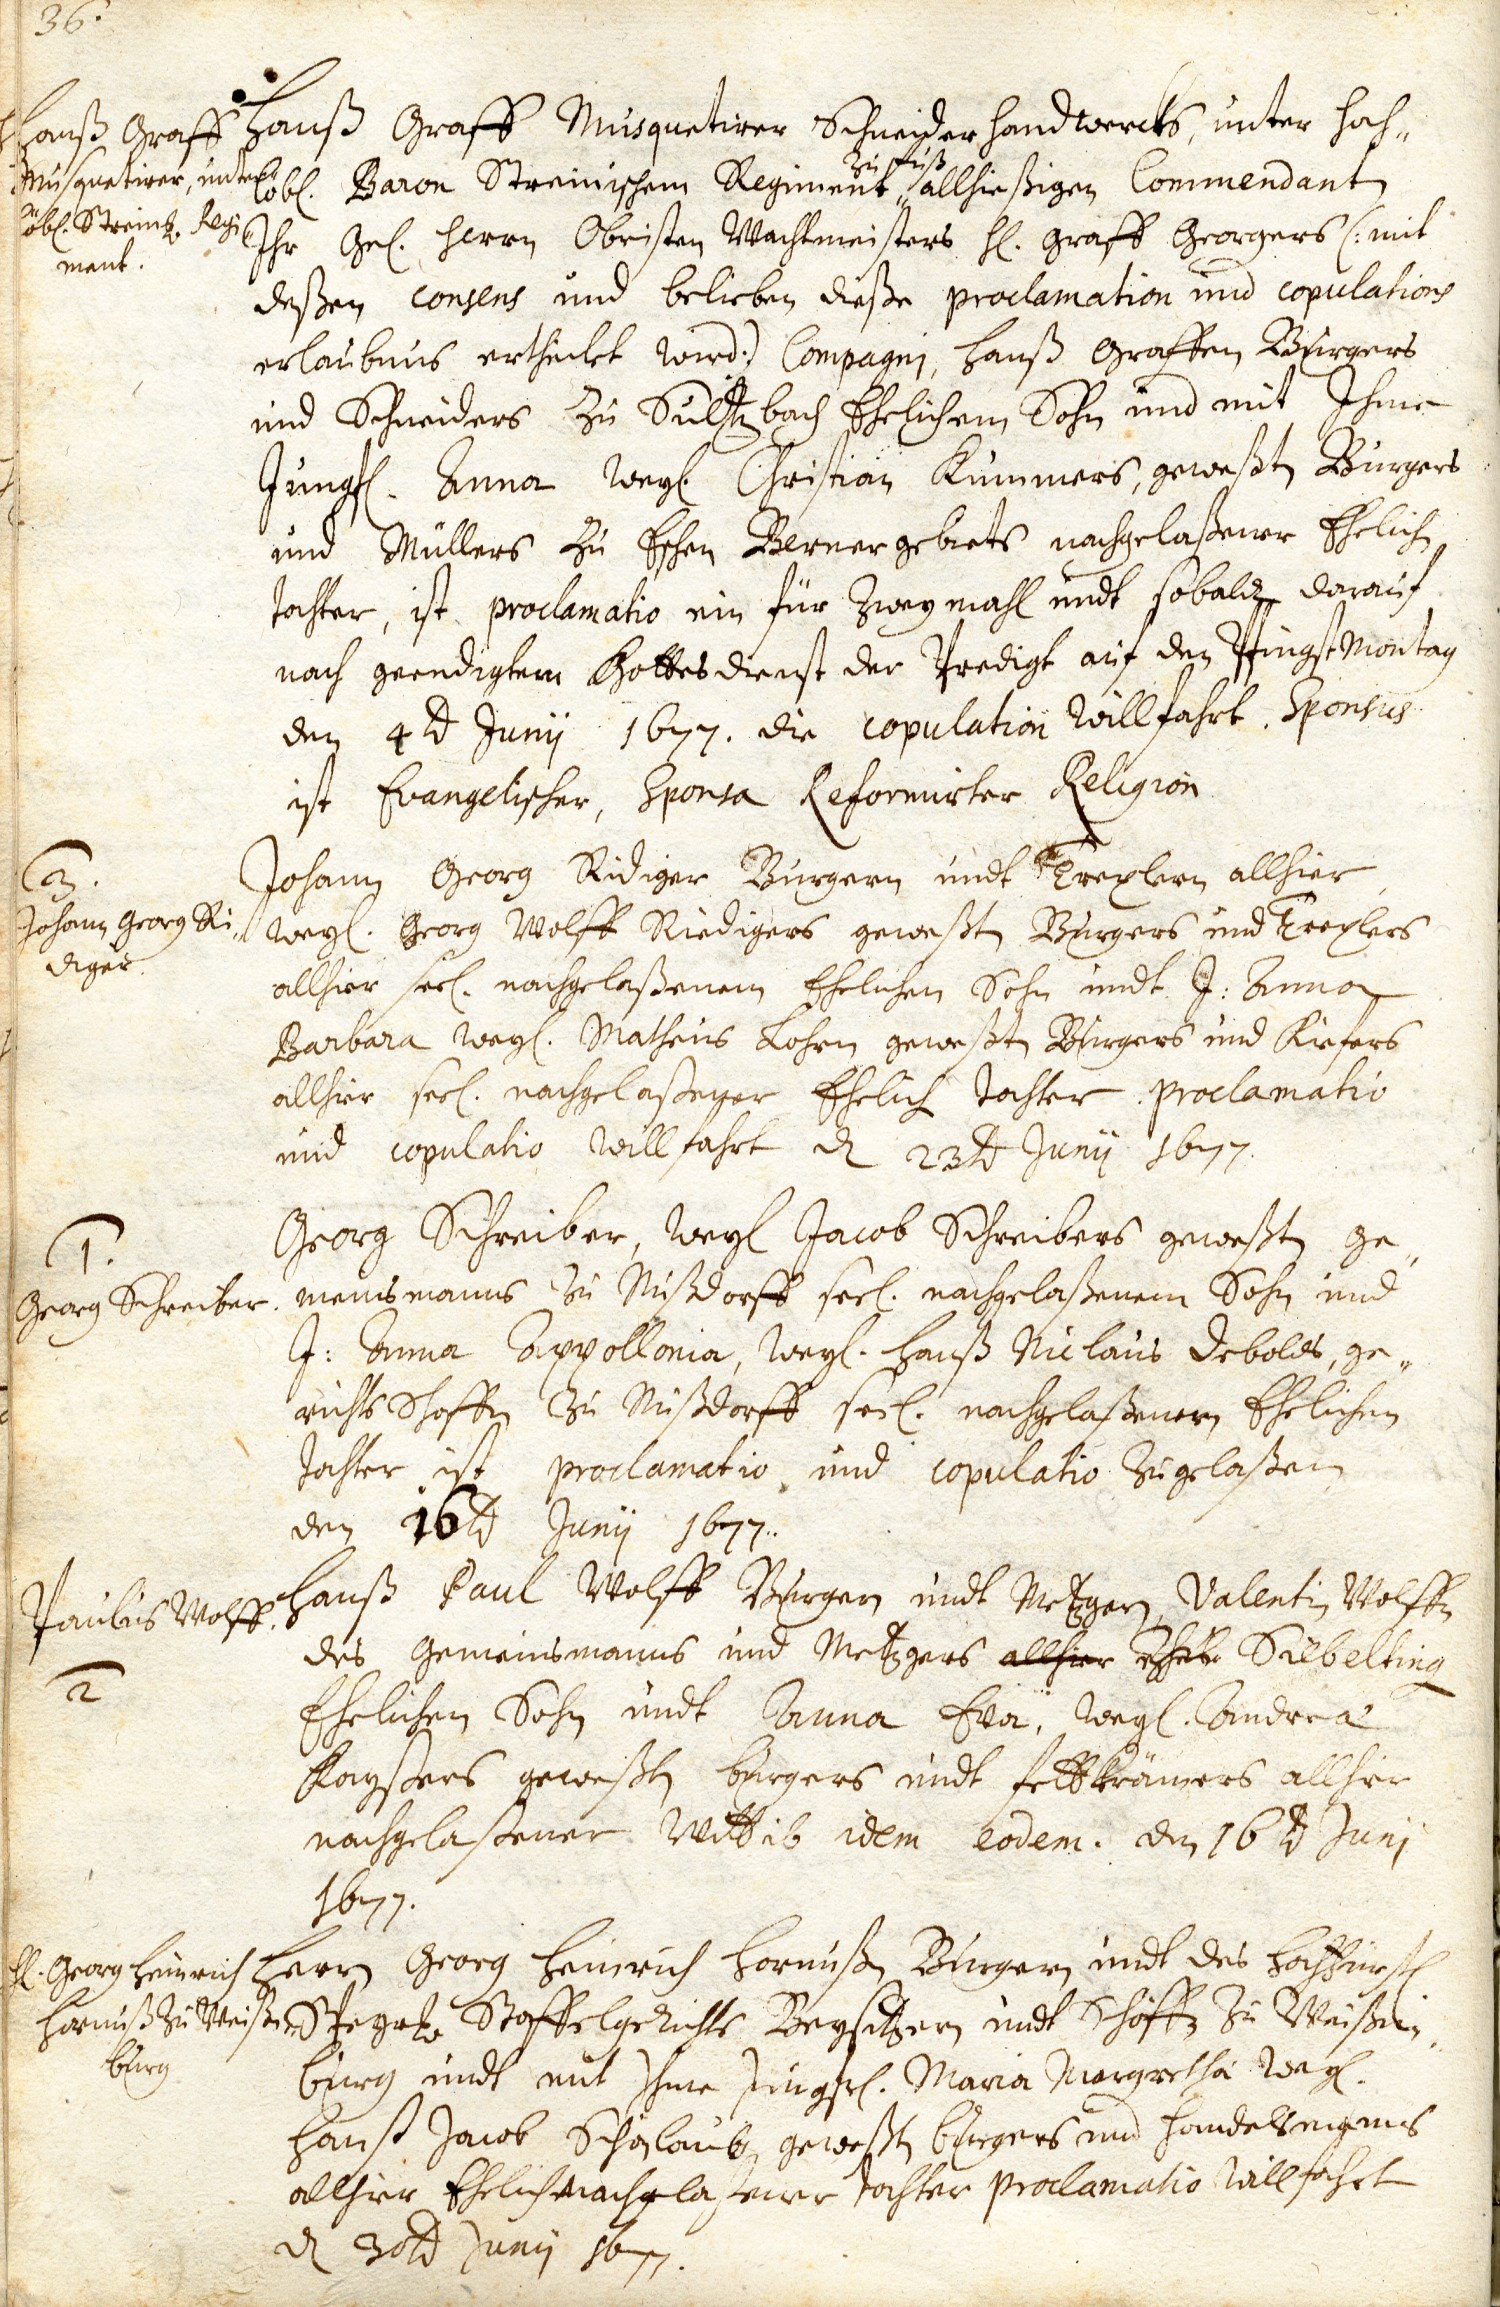 36.
Hanß Graff
Musquetirer, unter
löbl. Streinb. Regi
ment.
Hanß Graff Musquetirer Schneiderhandwercks, unter hoch„
löbl. Baron Streinischem Regiment zu Fuß allhießigen Commendant
Ihr Gel. Herrn Obristen Wachtmeisters H. Graff Georgers (: mit
deßen consens und belieben dieße proclamation und copulations
erlaubnus ertheilet wird:) Compagni, Hanß Graffen Burgers
und Schneiders zu Sultzbach Ehelichem Sohn und mit Ihme
Jungfl. Anna weyl. Christian Kummers, geweßten Burgers
und Müllers zu Eschen Bernergebiets nachgelaßener Ehelich
tochter, ist proclamatio ein für zweymahl undt sobalden darauf
nach geendigtem Gottesdienst der Predigt auf den PfingstMontag
den 4t. Junij 1677. die copulation willfahrt. Sponsus
ist Evangelischer, Sponsa Reformirter Religion
3.
Johann Georg Ri„
diger
Johann Georg Ridiger Burgern undt Trexlern allhier,
weyl. Georg Wolff Riedigers geweßten Burgers und Trexlers
allhier seel. nachgelaßenem Ehelichen Sohn undt J: Anna
Barbara weyl. Matheus Lohrn geweßten Burgers und Kiefers
allhier seel. nachgelaßener Ehelich tochter. proclamatio
und copulatio willfahrt d 23t. Junij 1677.
1.
Georg Schreiber.
Georg Schreiber, weyl Jacob Schreibers geweßten ge„
meinsmanns zu Nußdorff seel. nachgelaßenem Sohn und
J: Anna Appollonia, weyl. Hanß Niclaus Debolds, ge„
richts Schoffen zu Nußdorff seel. nachgelaßenern Ehelichen
tochter ist proclamatio und copulatio zugelaßen
den 16t. Junij 1677..
Paulus Wolff.
2
Hanß Paul Wolff Burgern undt Metzgern, Valentin Wolffen
des Gemeinsmanns und Metzgers allhier Silbelting
Ehelichen Sohn undt Anna Eva, weyl. Andrea
Kayßers geweßten burgers undt fettkrämers allhier
nachgelaßener Wittib idem eodem. den 16t. Junj
1677.
H. Georg Heinrich
Hornuß zu Weißen
burg
Herrn Georg Heinrich Hornußen Burgern undt des Hochfürstl
Speyr. Staffelgerichts Beysitzern undt Schöffen zu Weißen„
burg undt mit Ihme Jungfl. Maria Margretha weyl.
Hanß Jacob Schönlaub geweßten burgers und handelsmanns
allhier Ehelich nachgelaßener tochter proclamatio willfahrt
d 30t. Junij 1677.